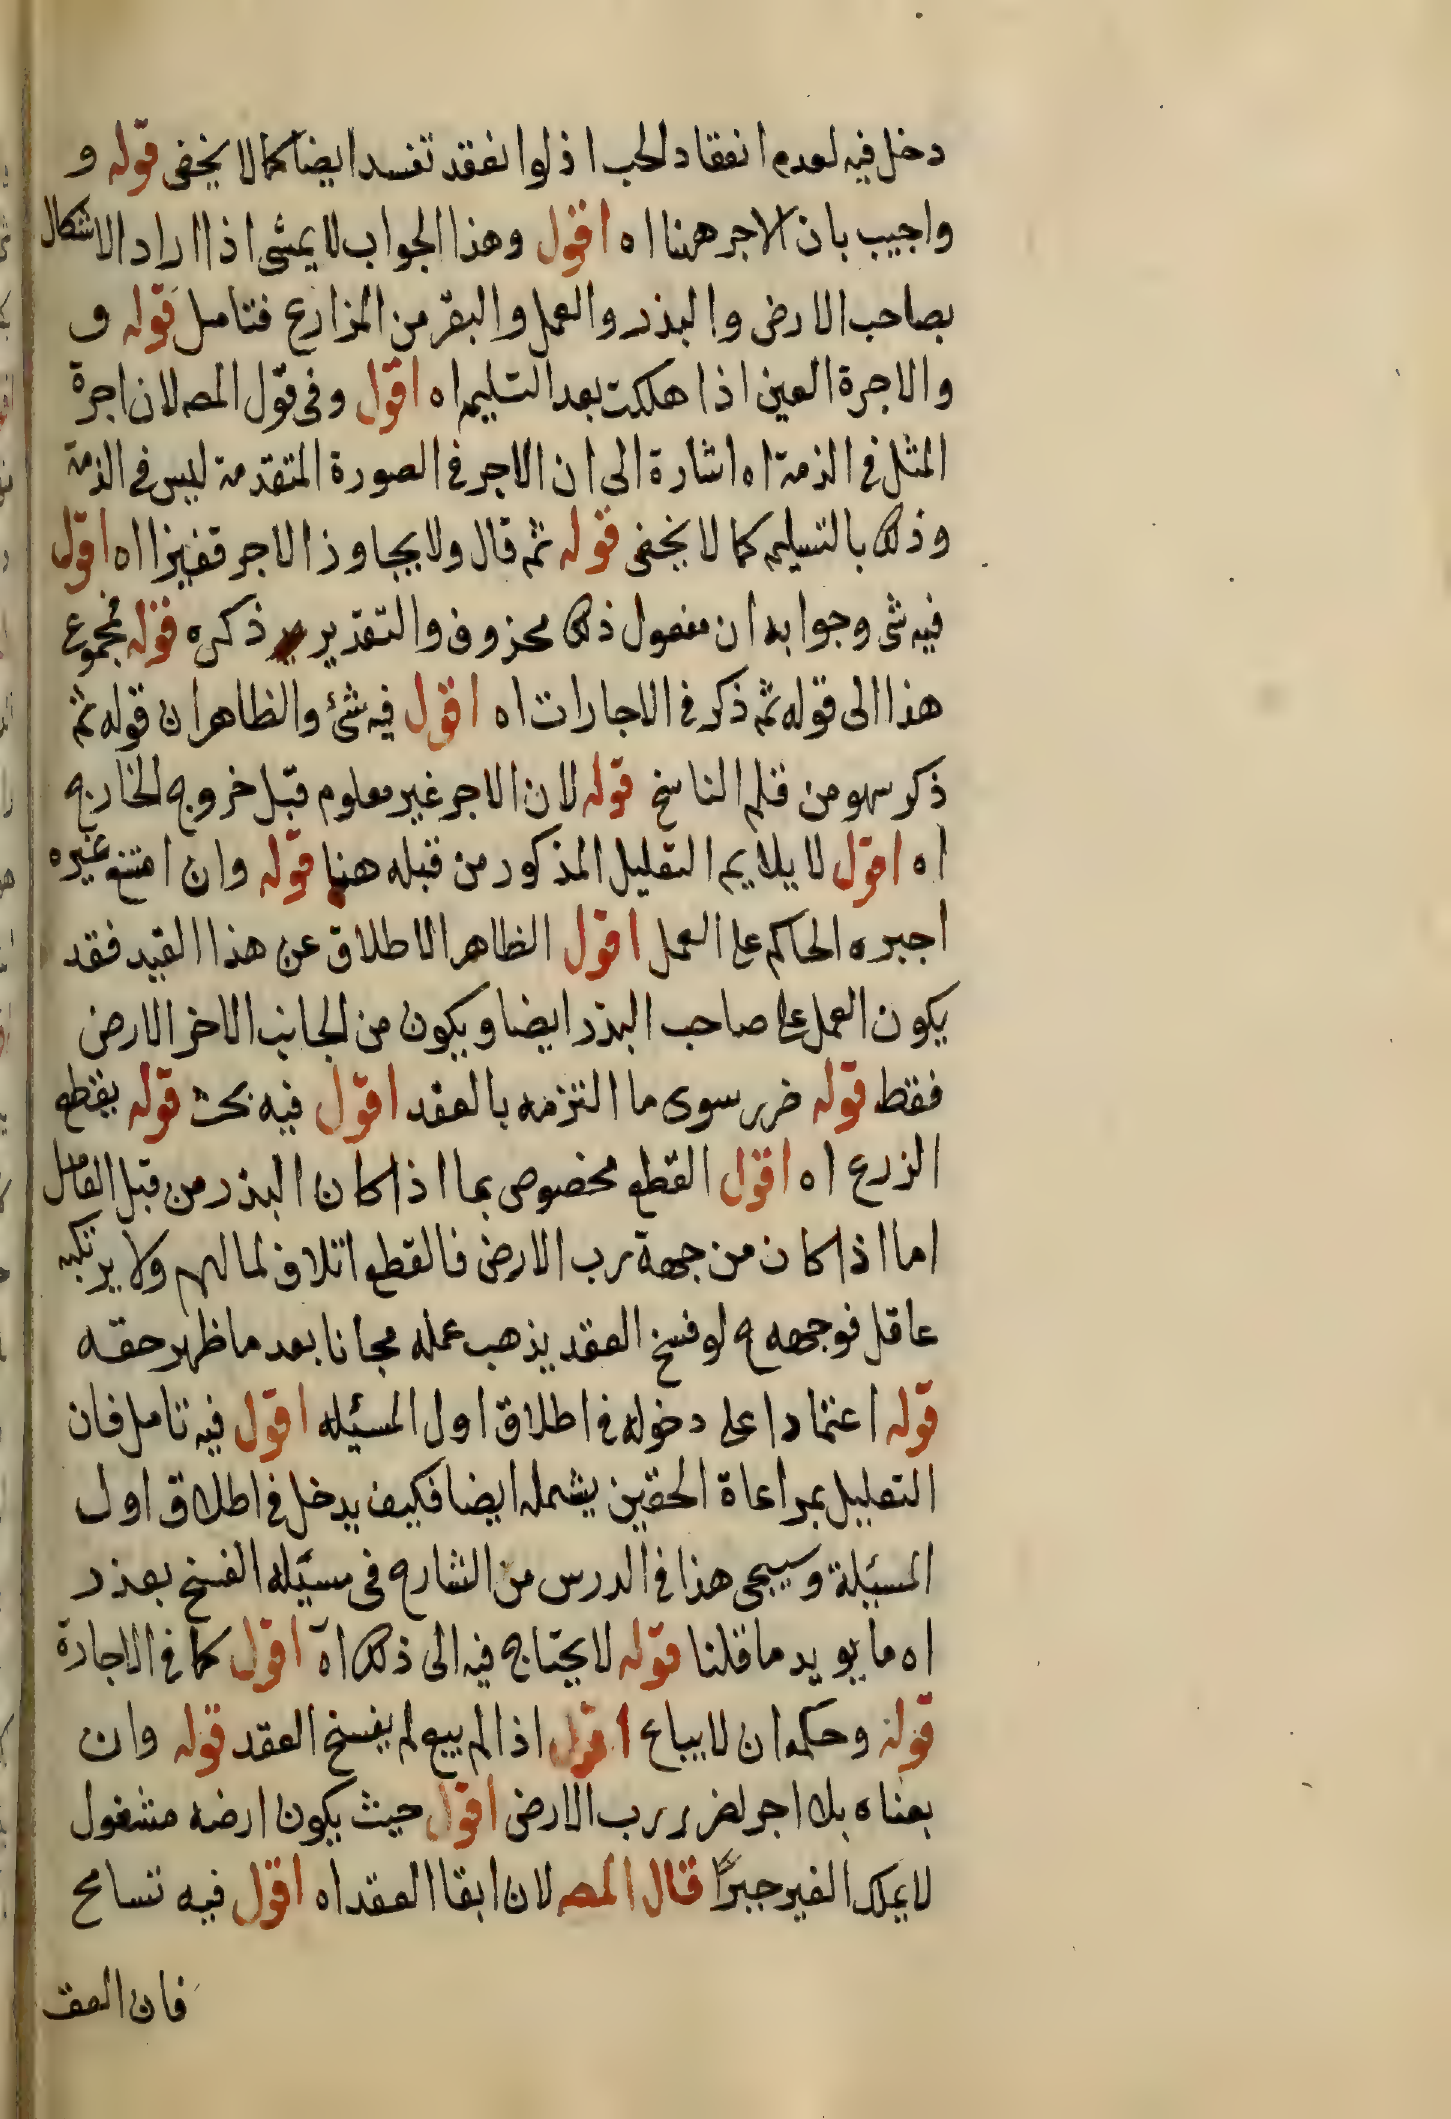 دخل فيه لعدم انفقاد الحب اذ لو انعقد تفسد ايضا كما لا يخفى قوله و
واجيب بان الاجر ههنا اه اقول وهذا الجواب لا يمشى اذا اراد الاشكال
بصاحب الارض والبذر والعمل والبقر من المزارع فتامل قوله و
والاجرة العين اذا هلكت بعد التسليم اه اقول وفى قول المصـ لان اجرة
المثل فى الذمة اه اشارة الى ان الاجر فى الصورة المتقدمة ليس فى الذمة
وذلك بالتسليم كما لا يخفى قوله ثم قال ولا يجاوز الاجر قفيزا اه اقول
فيه شى وجوابه ان مفعول ذلك محزوف والتقدير ذكره قوله مجموع
هذا الى قوله ثم ذكر فى الاجارات اه اقول فيه شئ والظاهر ان قوله ثم
ذكر سهو من قلم الناسخ قوله لان الاجر غير معلوم قبل خروج الخارج
اه اقول لا يلايم التعليل المذكور من قبله هنا قوله وان امتنع غيره
اجبره الحاكم على العمل اقول الظاهر الاطلاق عن هذا القيد فقد
يكون العمل على صاحب البذر ايضا ويكون من الجانب الاخر الارض
فقط قوله ضرر سوى ما التزمه بالعقد اقول فيه بحث قوله يقطع
الزرع اه اقول القطع مخصوص بما اذا كان البذر من قبل العامل
اما اذا كان من جهة رب الارض فالقطع اتلاف لمالهم ولا يرتكبه
عاقل فوجهه ح لو فسخ العقد يذهب عمله مجانا بعد ما ظهر حقه
قوله اعتمادا على دخوله فى اطلاق اول المسئله اقول فيه تامل فان
التعليل بمراعاة الحقين يشمله ايضا فكيف يدخل فى اطلاق اول
المسئلة وسيجى هذا فى الدرس من الشارح فى مسئله الفسخ بعذر
اه ما يويد ما قلنا قوله لا يحتاج فيه الى ذلك اه اقول كما فى الاجارة
قوله وحكمه ان لا يباع اقول اذا لم يبع لم يفسخ العقد قوله وان
بعناه بلا اجر لضرر رب الارض اقول حيث يكون ارضه مشغول
لا يملك الغير جبرًا قال المصـ لان ابقا العقد اه اقول فيه تسامح
فان العقـ